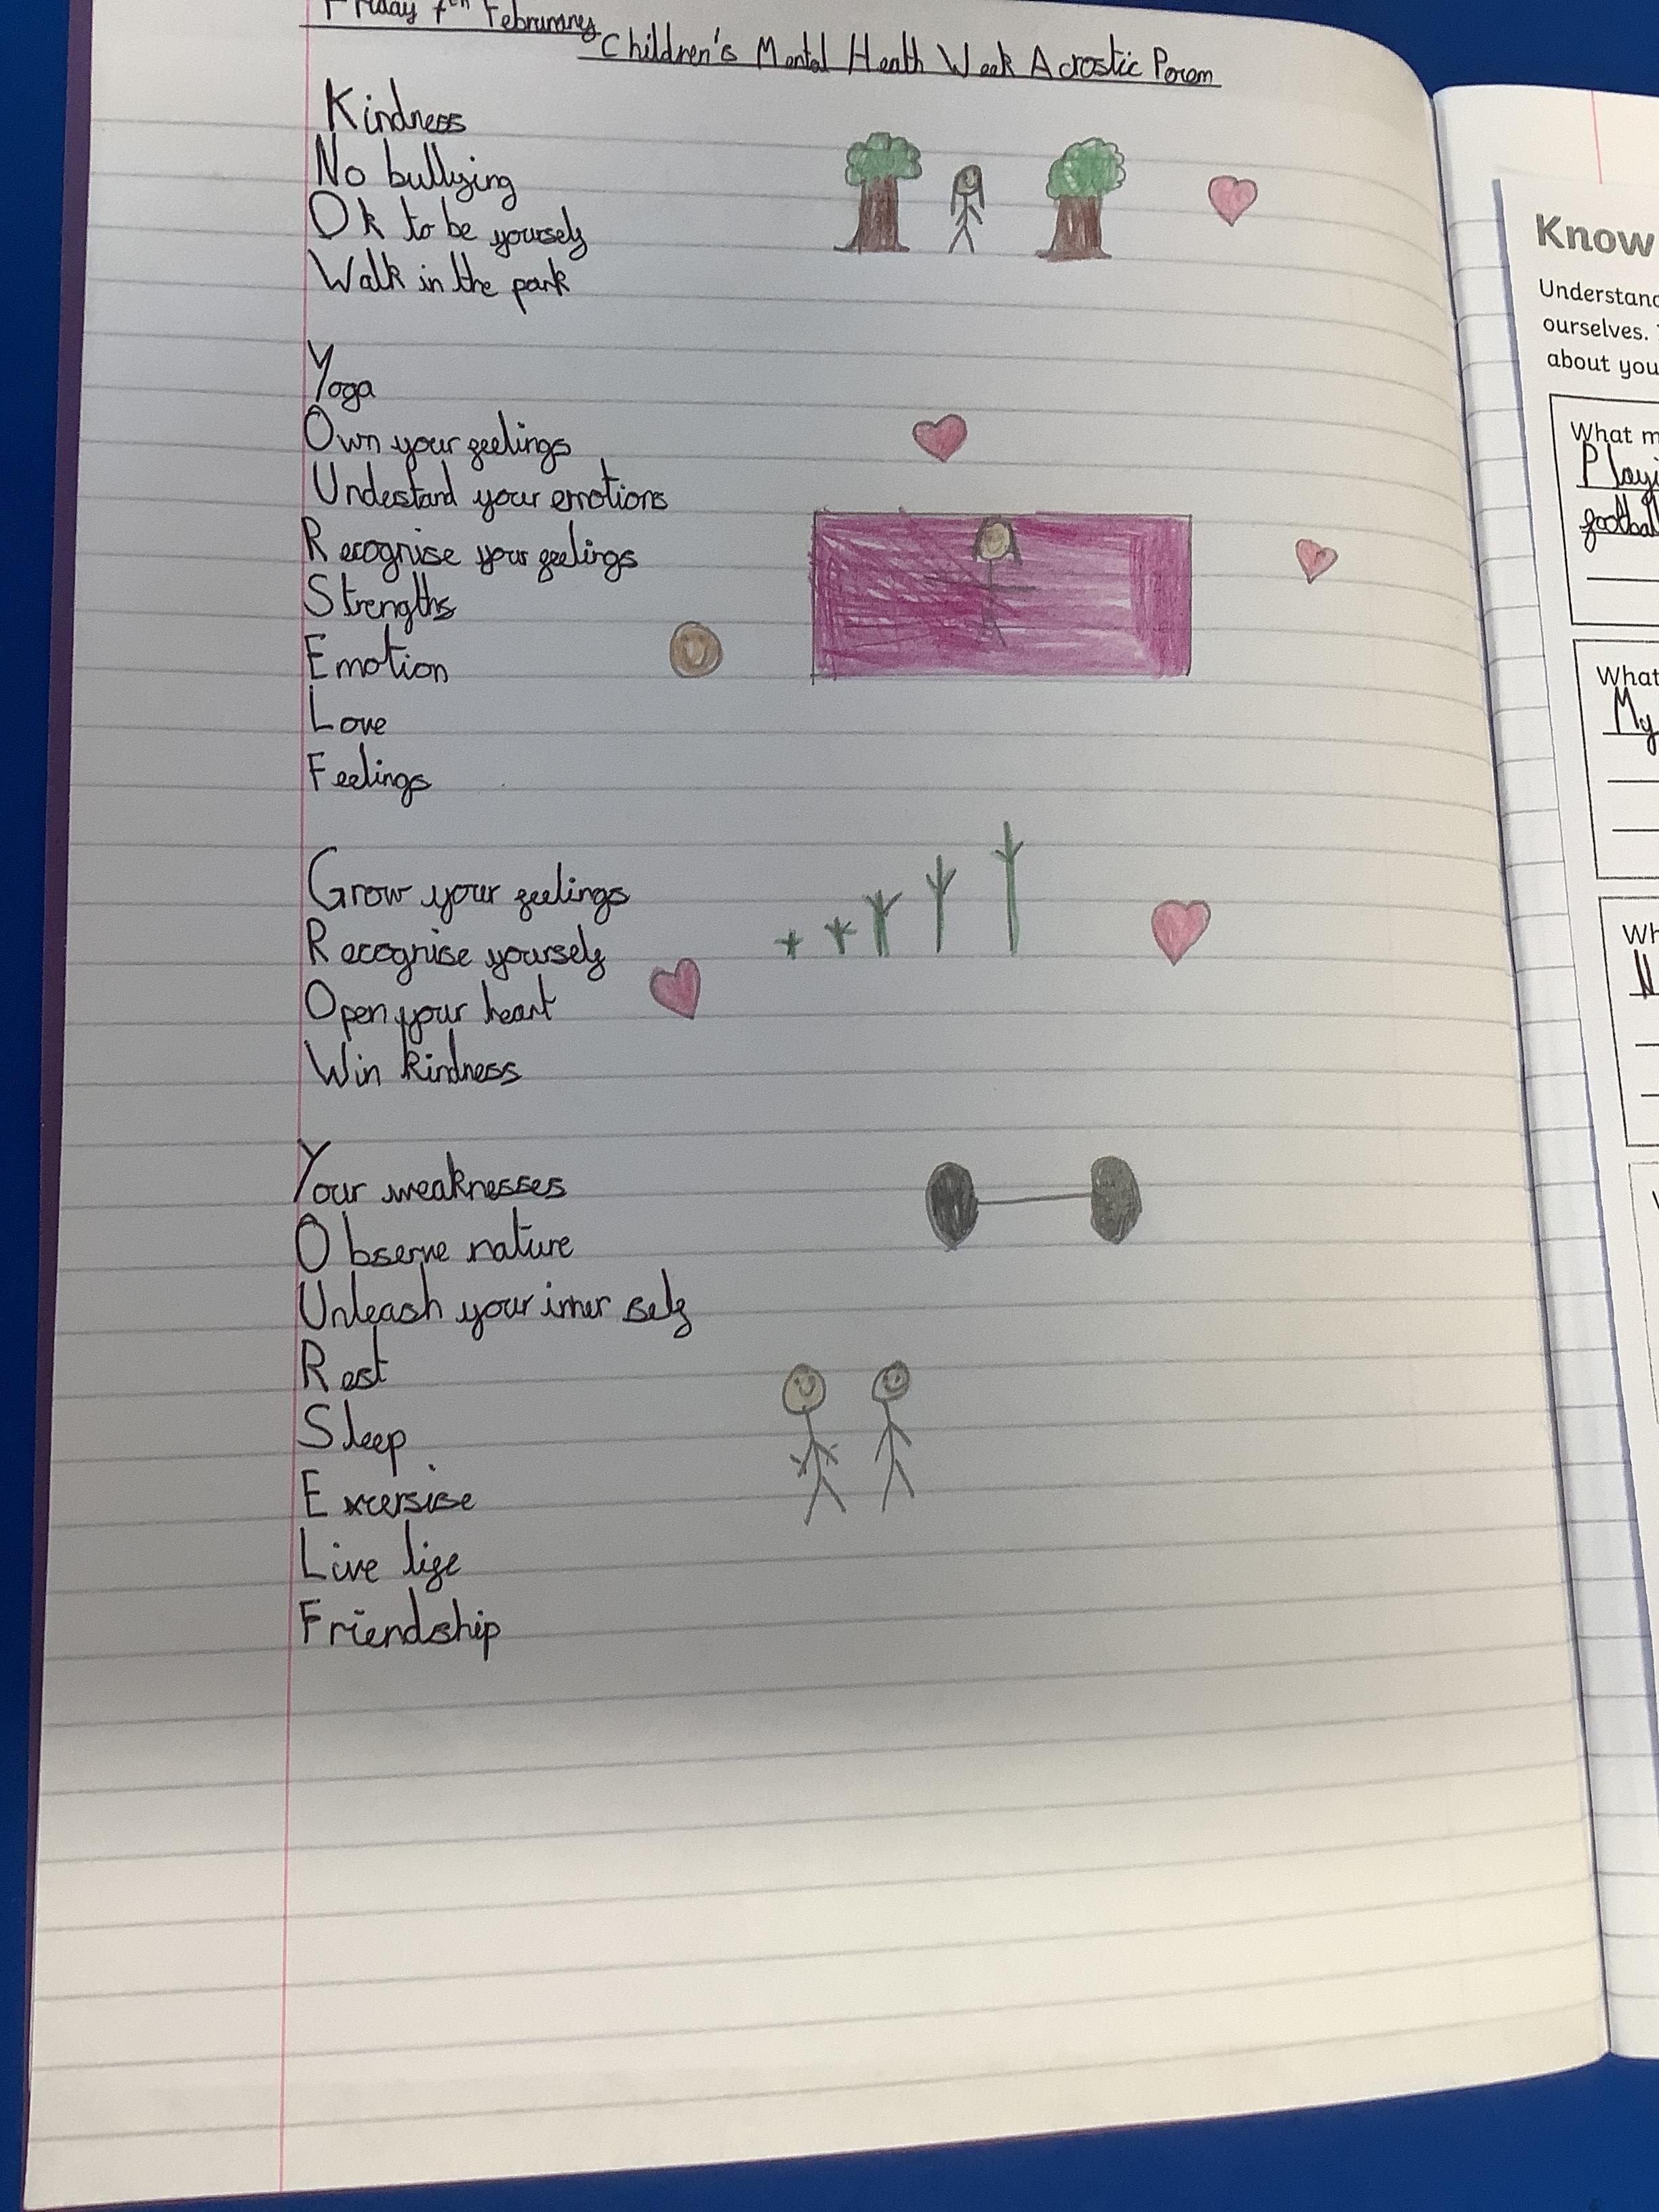 Friday 7th Februrary
Children's Mental Health Week Acrostic Porem
Kindness
No bullying
Ok to be yourself
Walk in the park
Yoga
Own your feelings
Undestand your emotions
Recognise your feelings
Strengths
Emotion
Love
Feelings
Grow your feelings
Recognise yourself
Open your heart
Win kindness
Your weaknesses
Observe nature
Unleash your inner self
Rest
Sleep
Excersise
Live life
Friendship
Know
Understand
ourselves.
about you
What m
Playi
footbal
What
My
Wh
N